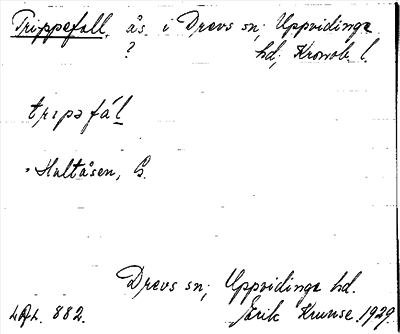 Trippefall, ås i Drevs sn; Uppvidinge
? hd; Kronob. l.
trɩpəfál
Hultåsen, G.
Drevs sn; Uppvidinge hd.
882. Erik Krunse. 1929.